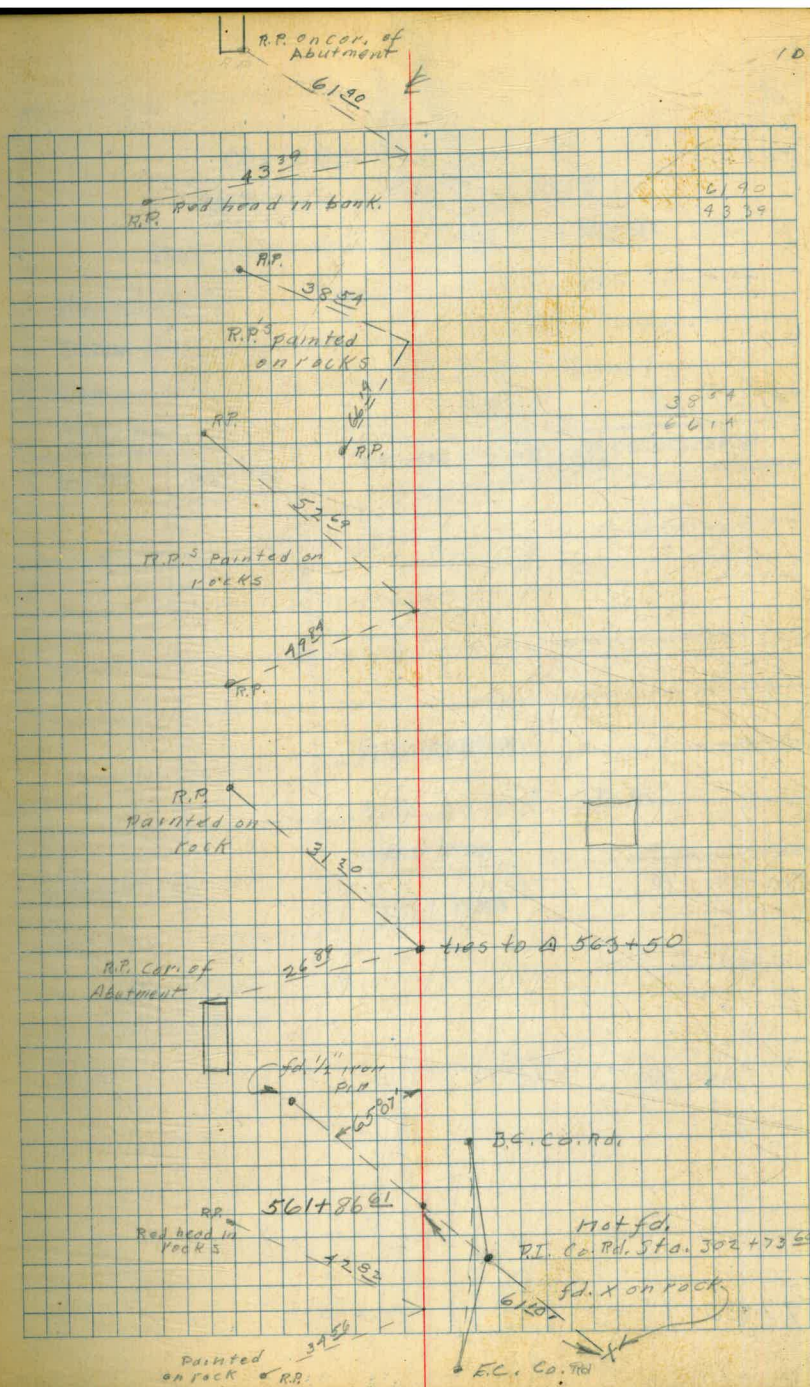 R.P. on cor. of
Abutment
10
61 90
43 39
R.P. Red head in bank.
61 90
43 39
R.P.
38 54
R.P.'s painted
on rocks
66 14
R.P.
38 54
66 14
R.P.
52 69
R.P.s Painted on
rocks
49 84
R.P.
R.P.
Painted on
rock
31 20
ties to @ 563+50
26 89
R.P. Cor. of
Abutment
fd. 1/2" iron
pin
65°07'
B.C. Co. Rd.
561+86 61
R.P.
Red head in
rocks
not fd.
P.I. Co. Rd. Sta. 302+73
fd. X on rock
61
X
34 56
Painted
on rock R.P.
E.C. Co. Rd